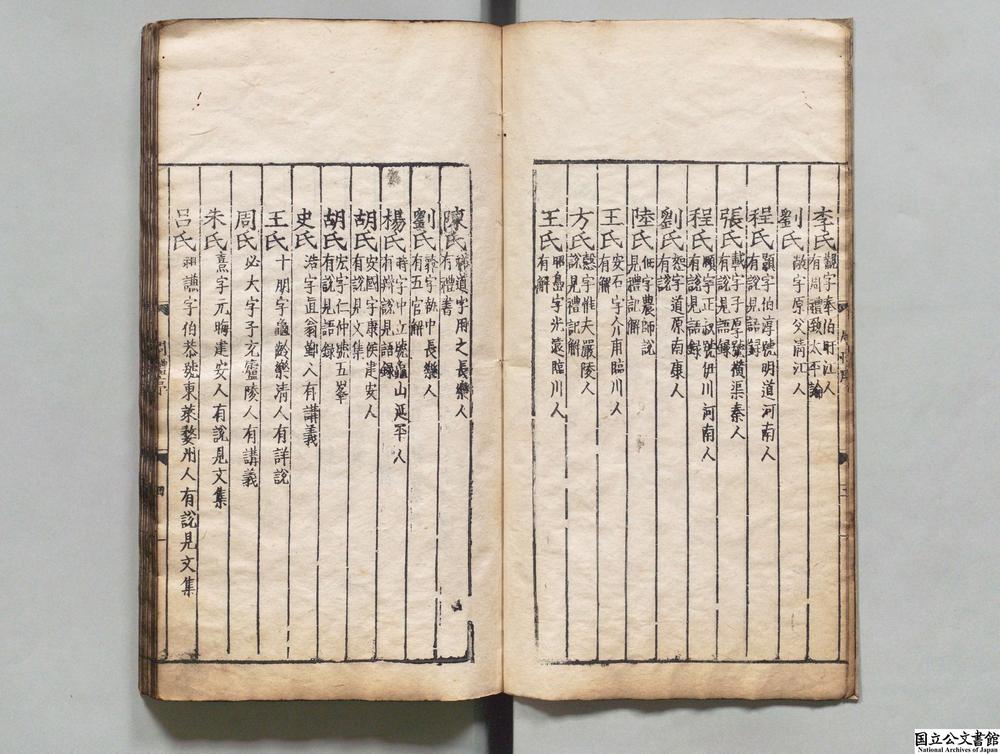 李氏覯字奉伯盱江人
有周禮致太平論
劉氏敞字原父清江人
程氏顥字伯淳號明道河南人
有說見語録
張氏載字子厚號横渠秦人
有說見語録
程氏頤字正叔號伊川河南人
有說見語録
劉氏恕字道原南康人
有說
陸氏佃字農師說
見禮記解
王氏安石字介甫臨川人
有解
方氏慤字惟夫嚴陵人
說見禮記解
王氏昭禹字光遠臨川人
有解
陳氏祥道字用之長樂人
有禮書
劉氏彝字執中長樂人
有五官解
楊氏時字中立號龜山延平人
有辯說見語録
胡氏安國字康侯建安人
有說見文集
胡氏宏字仁仲號五峯
有說見語録
史氏浩字直翁鄞人有講義
王氏十朋字龜齡樂清人有詳說
周氏必大字子充廬陵人有講義
朱氏熹字元晦建安人有說見文集
呂氏祖謙字伯恭號東萊婺州人有說見文集
四
国立公文書館
National Archives of Japan